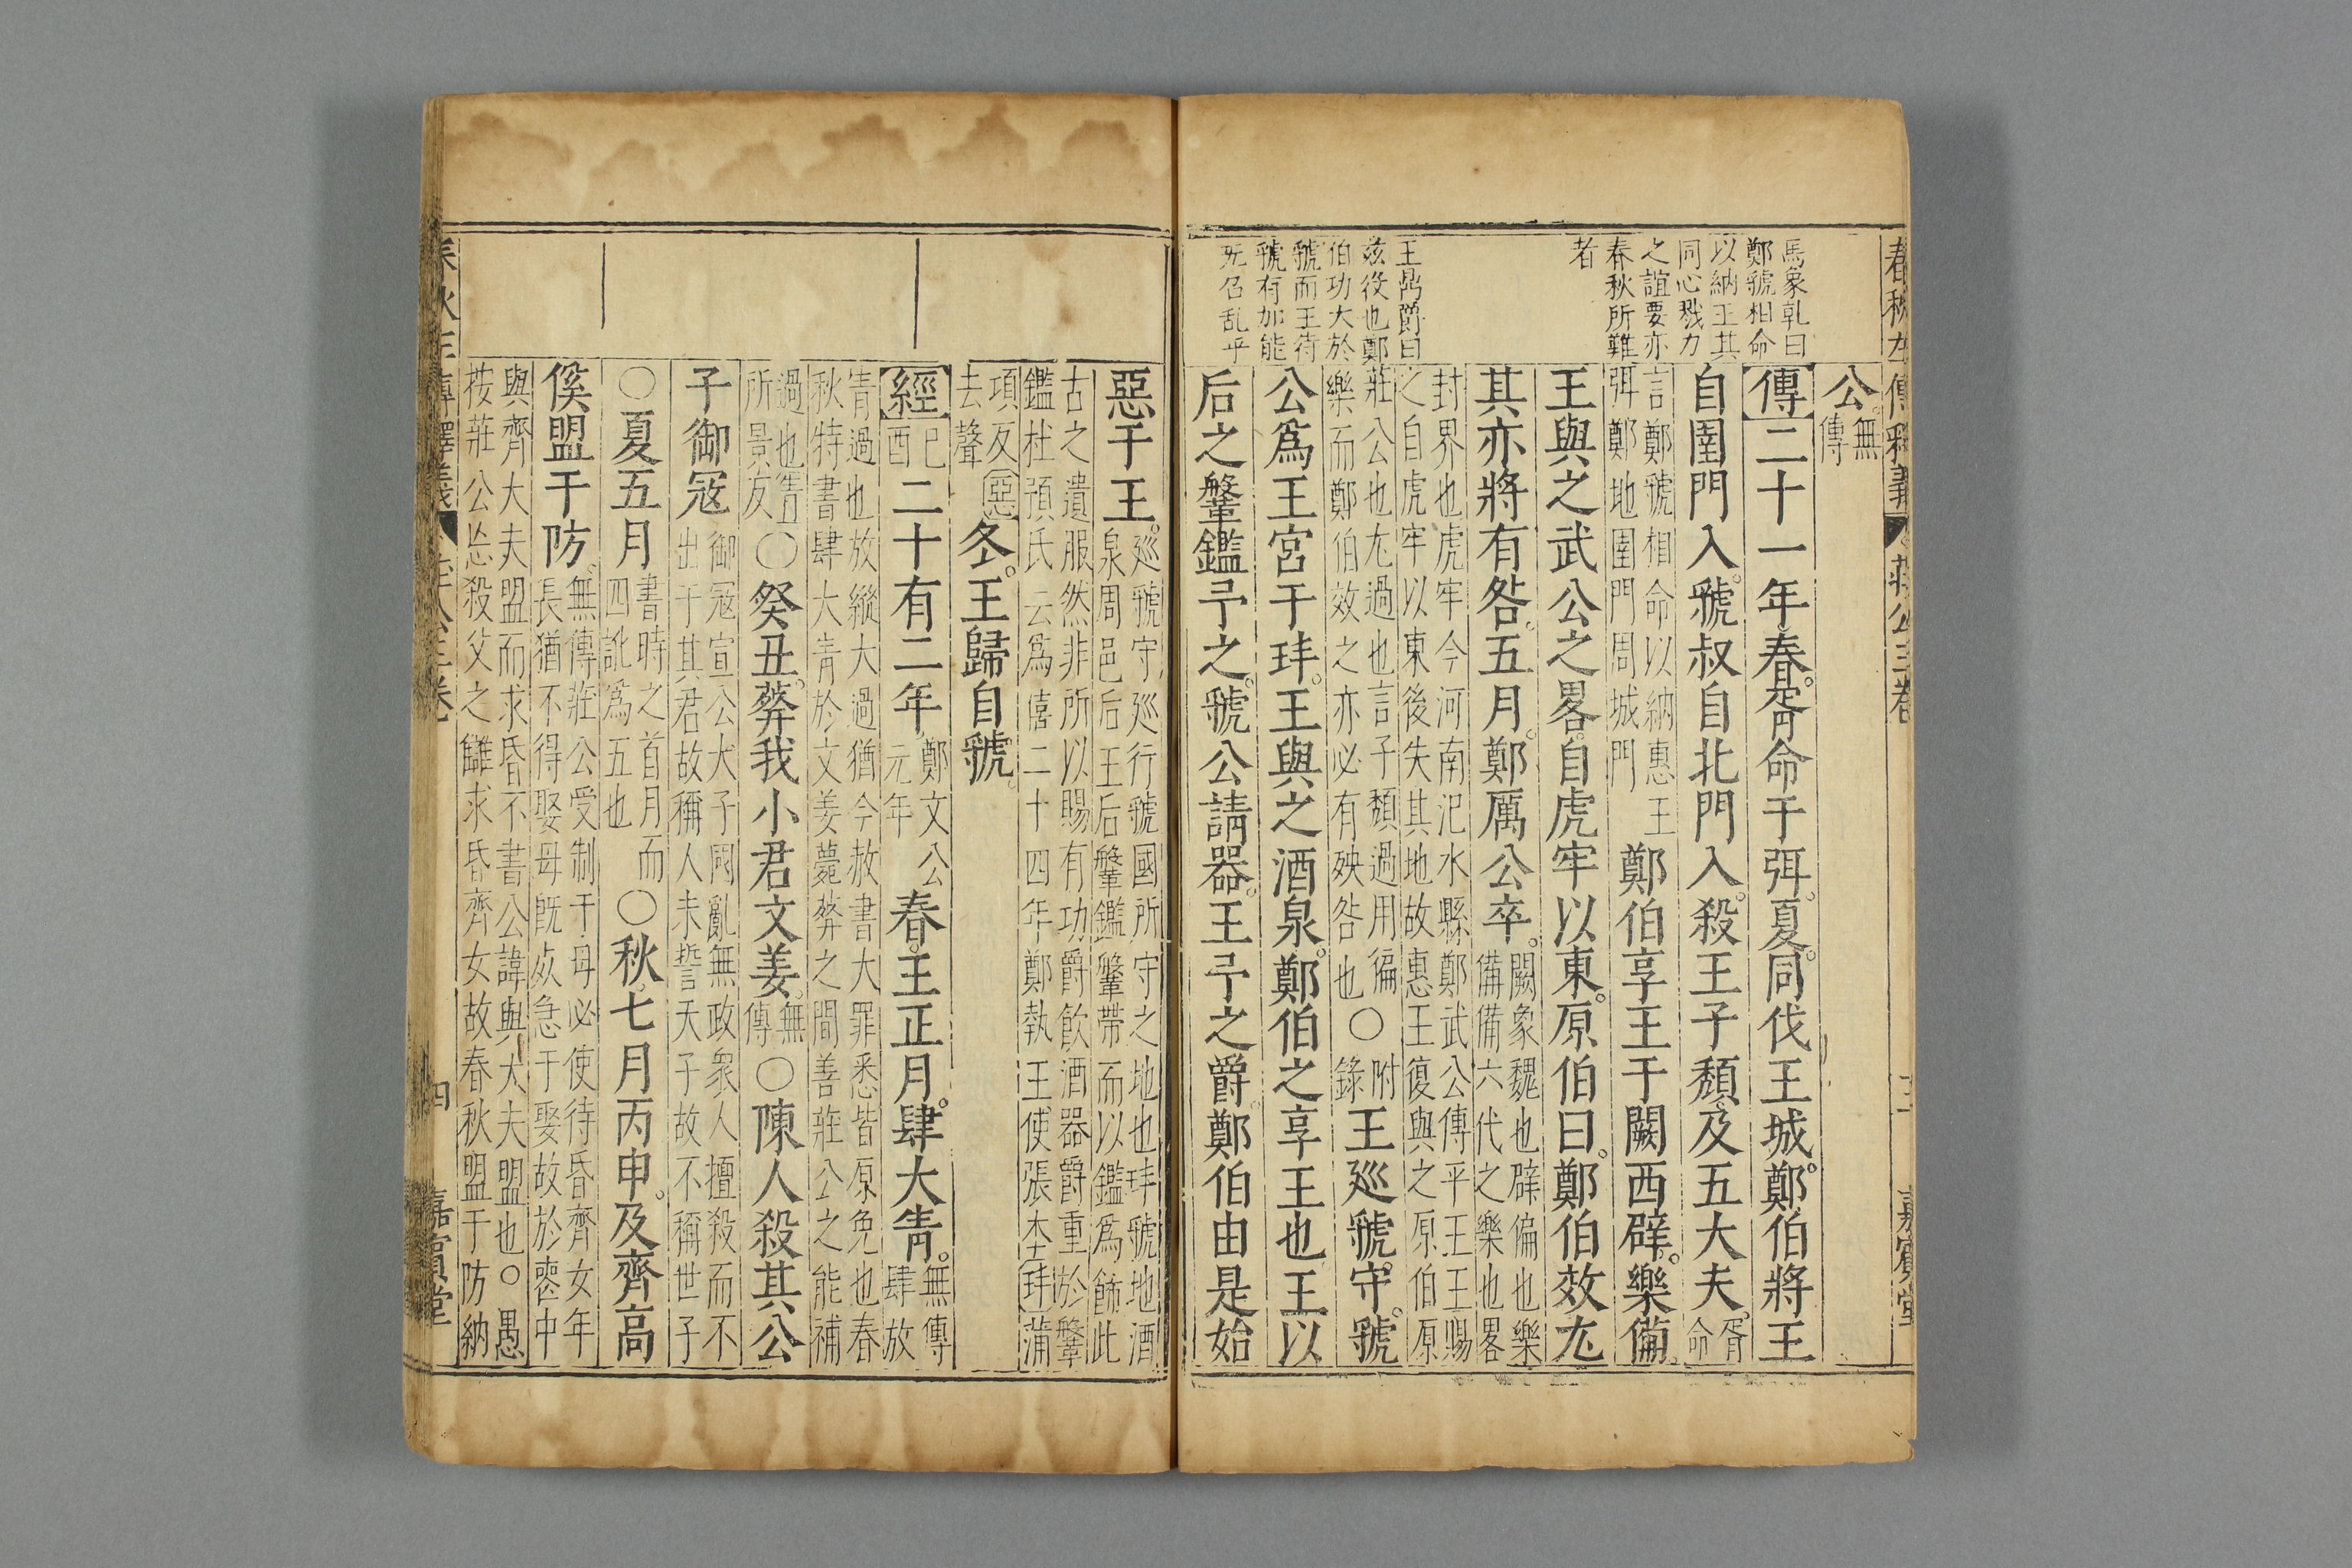 春秋左傳釋義 莊公三卷 嘉賓堂
馬象乾曰
鄭虢相命
以納王其
同心戮力
之誼要亦
春秋所難
者
王禼爵曰
茲役也鄭
伯功大於
虢而王待
虢有加能
旡召乱乎
公無傳
傳二十一年春胥命于弭夏同伐王城鄭伯將王
自圉門入虢叔自北門入殺王子頹及五大夫胥命
言鄭虢相命以納惠王弭鄭地圉門周城門鄭伯享王于闕西辟樂備
王與之武公之畧自虎牢以東原伯曰鄭伯效尤
其亦將有咎五月鄭厲公卒闕象魏也辟偏也樂備備六代之樂也畧
封界也虎牢今河南汜水縣鄭武公傅平王王賜之自虎牢以東後失其地故惠王復與之原伯原
莊公也尤過也言子頹過用徧樂而鄭伯效之亦必有殃咎也○附錄王廵虢守虢
公爲王宮于玤王與之酒泉鄭伯之享王也王以
后之鞶鑑予之虢公請器王予之爵鄭伯由是始
惡于王廵虢守廵行虢國所守之地也玤虢地酒泉周邑后王后鞶鑑鞶帶而以鑑爲飾此
古之遺服然非所以賜有功爵飲酒器爵重於鞶鑑杜預氏云爲僖二十四年鄭執王使張本玤蒲
項反惡去聲冬王歸自虢
經巳酉二十有二年鄭文公元年春王正月肆大眚無傳肆放
眚過也放縱大過猶今赦書大罪悉皆原免也春秋特書肆大眚於文姜薨葬之間善莊公之能補
過也眚所景反○癸丑葬我小君文姜無傳○陳人殺其公
子御寇御寇宣公太子國亂無政衆人擅殺而不出于其君故稱人未誓天子故不稱世子
○夏五月書時之首月而四訛爲五也○秋七月丙申及齊高
傒盟于防無傳莊公受制于母必使待昏齊女年長猶不得娶母旣歿急于娶故於喪中
與齊大夫盟而求昏不書公諱與大夫盟也○愚按莊公忘殺父之讎求昏齊女故春秋盟于防納
四 嘉賓堂